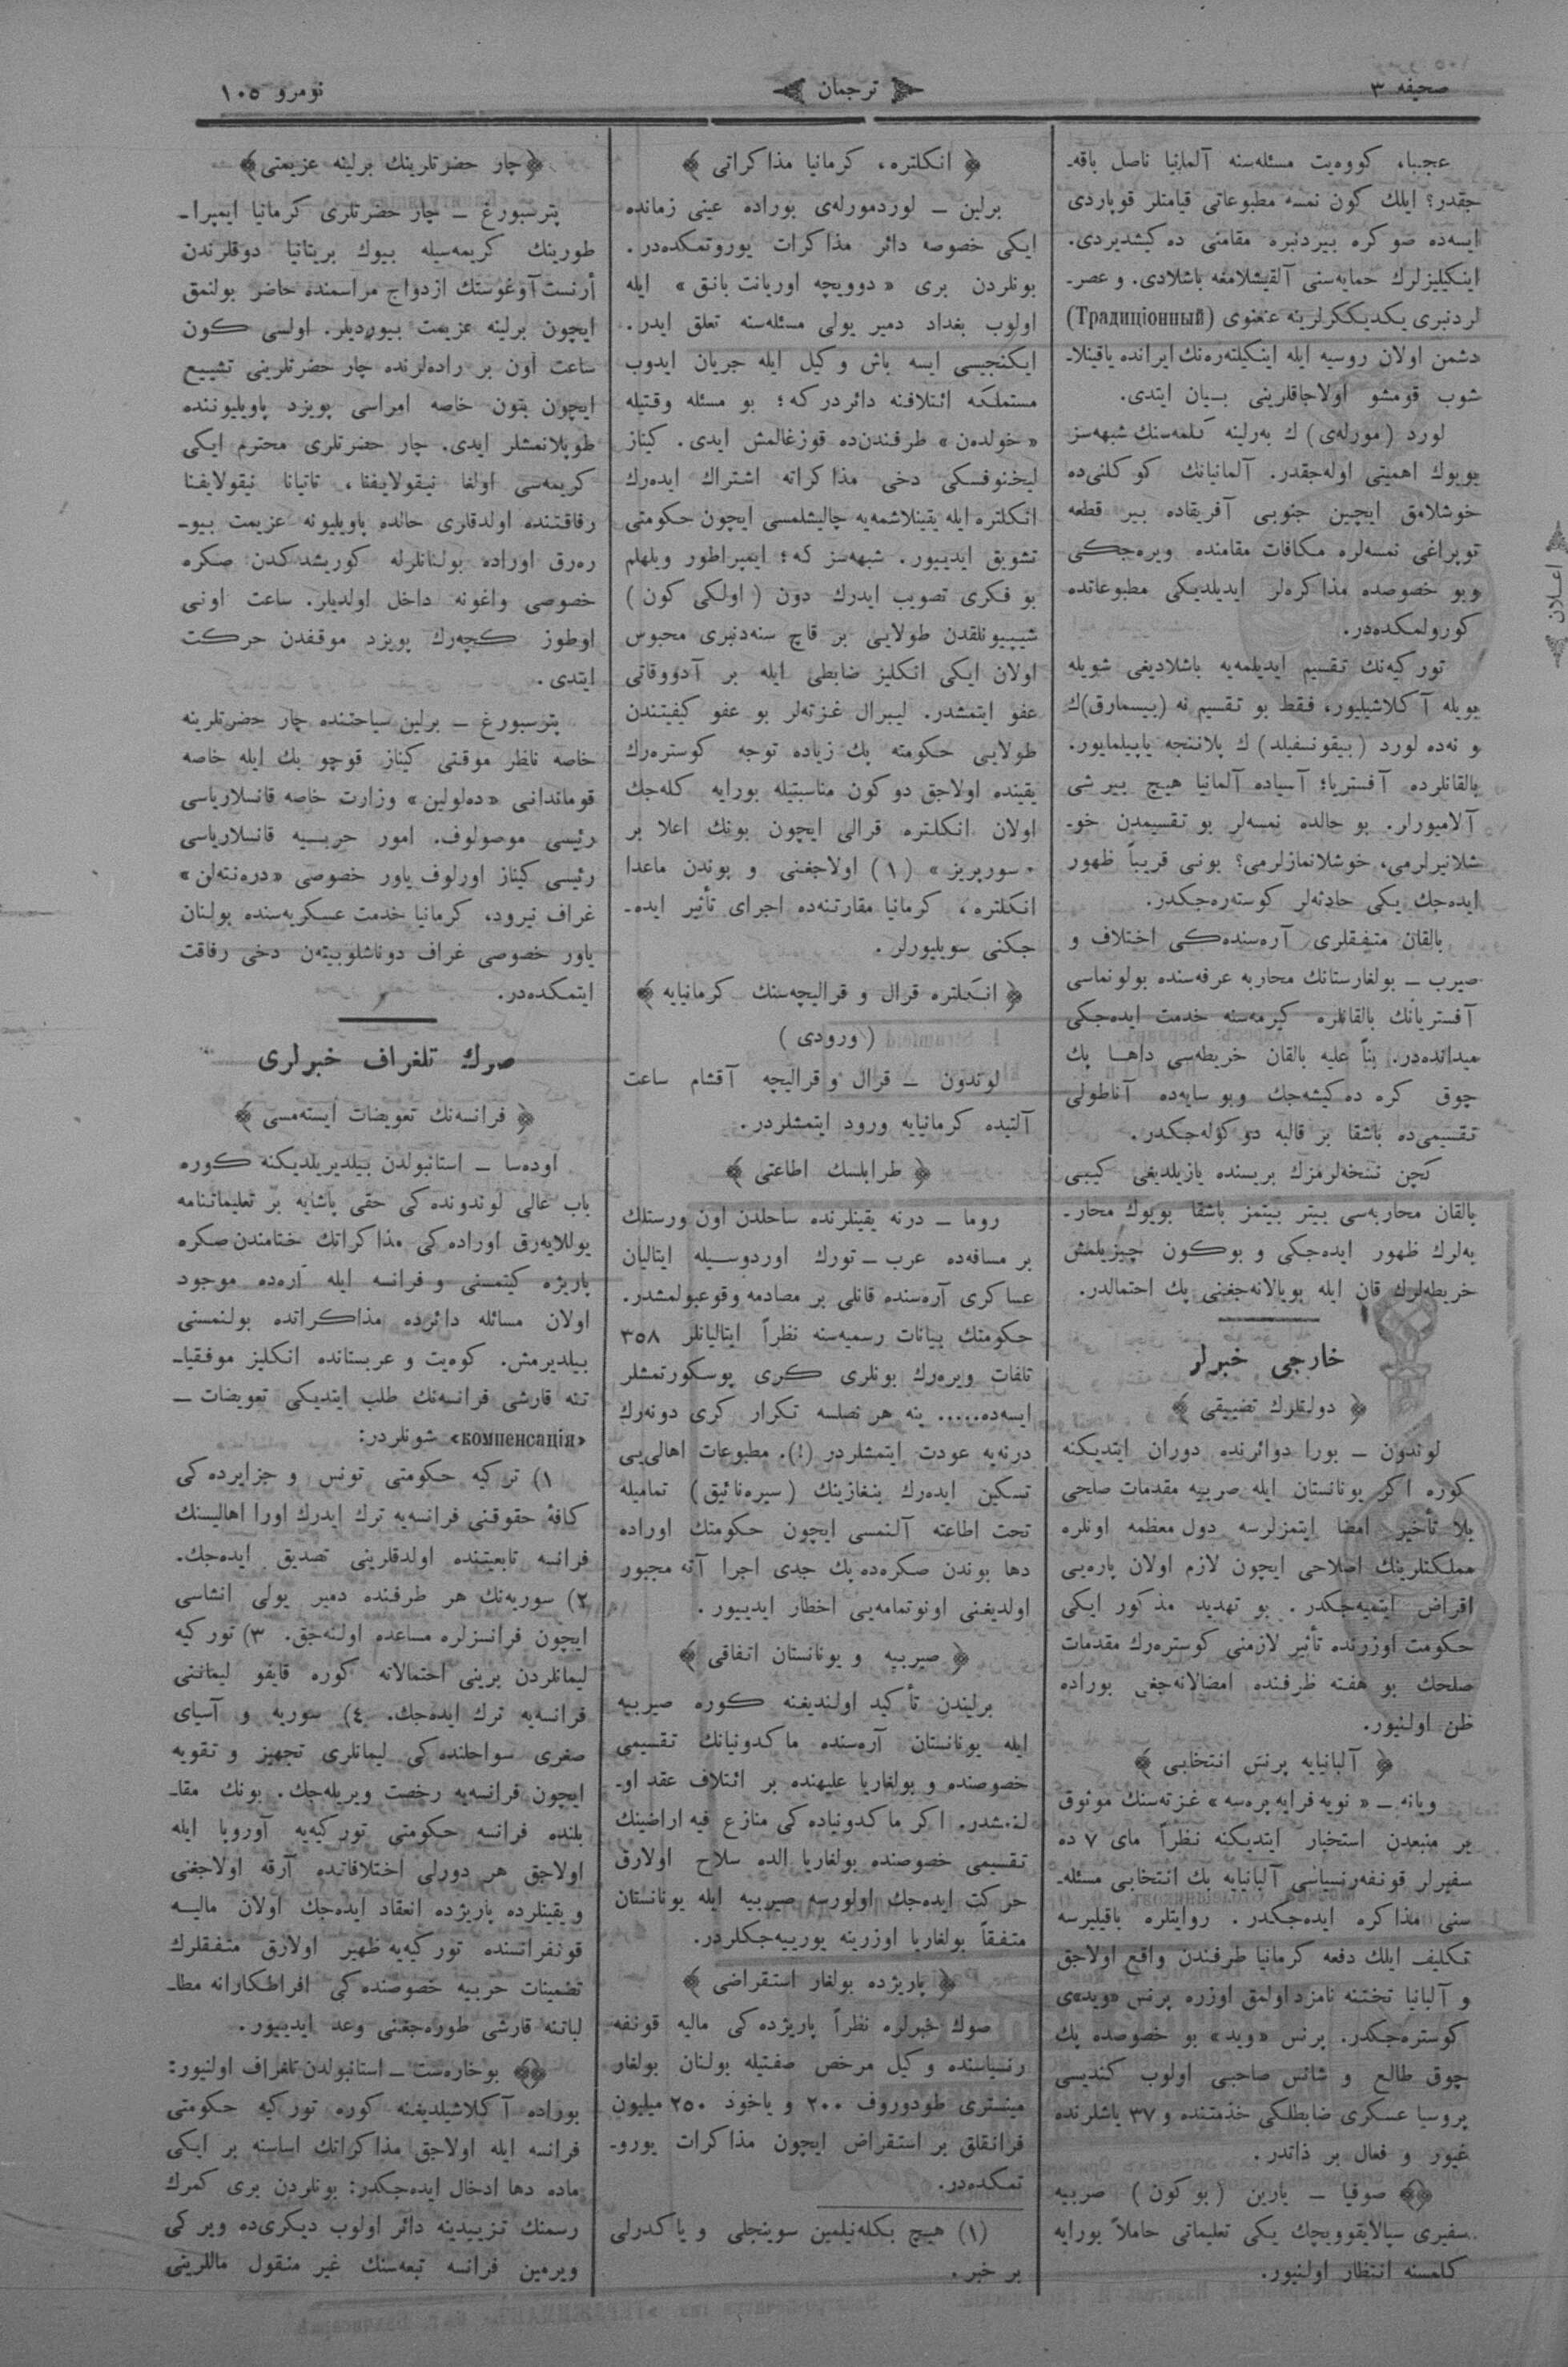 صحيفه ٣
ترجمان
نومرو ١٠٥
عجبا، كووەيت مسئله‌سنه آلمانيا ناصل باقه‌ـ
جقدر؟ ايلك كون نمسه مطبوعاتى قيامتلر قوپاردى
ايسه‌ده صوكره بيردنبره مقامنى ده‌كيشديردى.
اينكيليزلرك حمايه‌سنى آلقيشلامغه باشلادى. و عصرـ
لردنبرى يكديككرلرينه عنعنوى (Традиціонный)
دشمن اولان روسيه ايله اينكيلته‌ره‌نك ايرانده ياقينلاـ
شوب قومشو اولاجاقلرينى بـيان ايتدى.
لورد (مورله‌ى) ك به‌رلينه كلمه‌سنك شبهه‌سز
بويوك اهميتى اوله‌جقدر. آلمانيانك كوكلنى‌ده
خوشلامق ايچين جنوبى آفريقاده بير قطعه
توپراغى نمسه‌لره مكافات مقامنده ويره‌جكى
وبو خصوصده مذاكره‌لر ايديلديكى مطبوعاتده
كورولمكده‌در.
توركيه‌نك تقسيم ايديلمه‌يه باشلاديغى شويله
بويله آكلاشيليور، فقط بو تقسيم نه (بيسمارق)ك
و نه‌ده لورد (بيقونسفيلد) ك پلاننجه ياپيلمايور.
بالقانلرده آفستريا؛ آسياده آلمانيا هيچ بير شى
آلاميورلر. بو حالده نمسه‌لر بو تقسيمدن خوـ
شلانيرلرمى، خوشلانمازلرمى؟ بونى قريباً ظهور
ايده‌جك يكى حادثه‌لر كوسته‌ره‌جكدر.
بالقان متفقلرى آره‌سنده‌كى اختلاف و
صيرب ــ بولغارستانك محاربه عرفه‌سنده بولونماسى
آفستريانك بالقانلره كيرمه‌سنه خدمت ايده‌جكى
ميدانده‌در. بناً عليه بالقان خريطه‌سى داهـا پك
چوق كره ده‌كيشه‌جك وبو سايه‌ده آناطولى
تقسيمى‌ده باشقا بر قالبه دوكوله‌جكدر.
كچن نسخه‌لرمزك بريسنده يازيلديغى كيبى
بالقان محاربه‌سى بيتر بيتمز باشقا بويوك محارـ
به‌لرك ظهور ايده‌جكى و بوكون چيزيلمش
خريطه‌لرك قان ايله بويالانه‌جغينى پك احتمالدر.
خارجى خبرلر
﴿ دولتلرك تضييقى ﴾
لوندون ــ بورا دوائرنده دوران ايتديكنه
كوره اكر يونانستان ايله صربيه مقدمات صلحى
بلا تأخير امضا ايتمزلرسه دول معظمه اونلره
مملكتلرينك اصلاحى ايچون لازم اولان پاره‌يى
اقراض ايتميه‌جكدر. بو تهديد مذكور ايكى
حكومت اوزرنده تأثير لازمنى كوستره‌رك مقدمات
صلحك بو هفته ظرفنده امضالانه‌جغى بوراده
ظن اولنيور.
﴿ آلبانيايه پرنس انتخابى ﴾
ويانه ــ « نويه فرايه پره‌سه » غزته‌سنك موثوق
بر منبعدن استخبار ايتديكنه نظراً ماى ٧ ده
سفيرلر قونفه‌رنسياسى آلبانيايه بك انتخابى مسئله‌ـ
سنى مذاكره ايده‌جكدر. روايتلره باقيليرسه
تكليف ايلك دفعه كرمانيا طرفندن واقع اولاجق
و آلبانيا تختنه نامزد اولمق اوزره پرنس «ويد»ى
كوستره‌جكدر. پرنس «ويد» بو خصوصده پك
چوق طالع و شانس صاحبى اولوب كنديسى
پروسيا عسكرى ضابطلكى خذمتنده و ٣٧ ياشلرنده
غيور و فعال بر ذاتدر.
صوفيا ــ يارين (بوكون) صربيه
سفيرى سپالايقوويچك يكى تعليماتى حاملاً بورايه
كلمسنه انتظار اولنيور.
﴿ انكلتره، كرمانيا مذاكراتى ﴾
برلين ــ لوردمورله‌ى بوراده عينى زمانده
ايكى خصوصه دائر مذاكرات يوروتمكده‌در.
بونلردن برى « دوويچه اوريانت بانق » ايله
اولوب بغداد دمير يولى مسئله‌سنه تعلق ايدر.
ايكنجيسى ايسه باش وكيل ايله جريان ايدوب
مستملكه ائتلافنه دائردركه؛ بو مسئله وقتيله
«خولده‌ن» طرفندن‌ده قوزغالمش ايدى. كيناز
ليخنوفسكى دخى مذاكراته اشتراك ايده‌رك
انكلتره ايله يقينلاشمه‌يه چاليشلمسى ايچون حكومتى
تشويق ايدييور. شبهه‌سز كه؛ ايمپراطور ويلهلم
بو فكرى تصويب ايدرك دون (اولكى كون)
شپييونلقدن طولايى بر قاچ سنه‌دنبرى محبوس
اولان ايكى انكليز ضابطى ايله بر آدووقاتى
عفو ايتمشدر. ليبرال غزته‌لر بو عفو كيفيتندن
طولايى حكومته پك زياده توجه كوستره‌رك
يقينده اولاجق دوكون مناسبتيله بورايه كله‌جك
اولان انكلتره قرالى ايچون بونك اعلا بر
«سورپريز» (١) اولاجغنى و بوندن ماعدا
انكلتره، كرمانيا مقارتنه‌ده اجراى تأثير ايده‌ـ
جكنى سويليورلر.
﴿ انكلتره قرال و قراليچه‌سنك كرمانيايه ﴾
(ورودى)
لوندون ــ قرال و قراليچه آقشام ساعت
آلتيده كرمانيايه ورود ايتمشلردر.
﴿ طرابلسك اطاعتى ﴾
روما ــ درنه يقينلرنده ساحلدن اون ورستلك
بر مسافه‌ده عرب ــ تورك اوردوسـيله ايتاليان
عساكرى آره‌سنده قانلى بر مصادمه وقوعبولمشدر.
حكومتك بيانات رسميه‌سنه نظراً ايتاليانلر ٣٥٨
تلفات ويره‌رك بونلرى كرى پوسكورتمشلر
ايسه‌ده..... ينه هر نصلسه تكرار كرى دونه‌رك
درنه‌يه عودت ايتمشلردر (!). مطبوعات اهالى‌يى
تسكين ايده‌رك بنغازينك (سيره‌نائيق) تماميله
تحت اطاعته آلنمسى ايچون حكومتك اوراده
دها بوندن صكره‌ده پك جدى اجرا آته مجبور
اولديغنى اونوتمامه‌يى اخطار ايدييور.
﴿ صيربيه و يونانستان اتفاقى ﴾
برليندن تأكيد اولنديغنه كوره صيربيه
ايله يونانستان آره‌سنده ماكدونيانك تقسيمى
خصوصنده و بولغاريا عليهنده بر ائتلاف عقد اوـ
لنمشدر. اكر ماكدونياده‌كى منازع فيه اراضينك
تقسيمى خصوصنده بولغاريا الده سلاح اولارق
حركت ايده‌جك اولورسه صيربيه ايله يونانستان
متفقاً بولغاريا اوزرينه يورييه‌جكلردر.
﴿ پاريژده بولغار استقراضى ﴾
صوك خبرلره نظراً پاريژده‌كى ماليه قونفه
رنسياسنده وكيل مرخص صفتيله بولنان بولغار
مينسترى طودوروف ٢٠٠ و ياخود ٢٥٠ ميليون
فرانقلق بر استقراض ايچون مذاكرات يوروـ
تمكده‌در.
(١) هيچ بكله‌نيلمين سوينجلى و ياكدرلى
بر خبر.
﴿چار حضرتلرينك برلينه عزيمتى﴾
پترسبورغ ــ چار حضرتلرى كرمانيا ايمپراـ
طورينك كريمه‌سيله بيوك بريتانيا دوقلرندن
أرنست آوغوستك ازدواج مراسمنده حاضر بولنمق
ايچون برلينه عزيمت بيورديلر. اولسى كون
ساعت اون بر راده‌لرنده چار حضرتلرينى تشييع
ايچون بتون خاصه امراسى پويزد پاويليوننده
طوپلانمشلر ايدى. چار حضرتلرى محترم ايكى
كريمه‌سى اولغا نيقولايفنا، تاتيانا نيقولايفنا
رفاقتنده اولدقلرى حالده پاويليونه عزيمت بيوـ
ره‌رق اوراده بولنانلرله كوريشدكدن صكره
خصوصى واغونه داخل اولديلر. ساعت اونى
اوطوز كچه‌رك پويزد موقفدن حركت
ايتدى.
پترسبورغ ــ برلين سياحتنده چار حضرتلرينه
خاصه ناظر موقتى كيناز قوچو بك ايله خاصه
قوماندانى «ده‌لولين» وزارت خاصه قانسلارياسى
رئيسى موصولوف. امور حربـيه قانسلارياسى
رئيسى كيناز اورلوف ياور خصوصى «دره‌نته‌لن»
غراف نيرود، كرمانيا خدمت عسكريه‌سنده بولنان
ياور خصوصى غراف دوناشلوبيته‌ن دخى رفاقت
ايتمكده‌در.
صوك تلغراف خبرلرى
﴿ فرانسه‌نك تعويضات ايسته‌مسى ﴾
اوده‌سا ــ استانبولدن بيلديريلديكنه كوره
باب عالى لوندونده‌كى حقى پاشايه بر تعليماتنامه
يوللايه‌رق اوراده‌كى مذاكراتك ختامندن صكره
پاريژه كيتمسنى و فرانسه ايله آره‌ده موجود
اولان مسائله دائرده مذاكراتده بولنمسنى
بيلديرمش. كوه‌يت و عربستانده انكليز موفقياـ
تنه قارشى فرانسه‌نك طلب ايتديكى تعويضات ــ
«компенсація» شونلردر:
١) تركيه حكومتى تونس و جزايرده‌كى
كافهٔ حقوقنى فرانسه‌يه ترك ايدرك اورا اهاليسنك
فرانسه تابعيتنده اولدقلرينى تصديق ايده‌جك.
٢) سوريه‌نك هر طرفنده دمير يولى انشاسى
ايچون فرانسزلره مساعده اولنه‌جق. ٣) توركيه
ليمانلردن برينى احتمالاته كوره قايفو ليماننى
فرانسه‌يه ترك ايده‌جك. ٤) سوريه و آسياى
صغرى سواحلنده‌كى ليمانلرى تجهيز و تقويه
ايچون فرانسه‌يه رخصت ويريله‌جك. بونك مقاـ
بلنده فرانسه حكومتى توركيه‌يه آوروپا ايله
اولاجق هر دورلى اختلافاتده آرقه اولاجغنى
و يقينلرده پاريژده انعقاد ايده‌جك اولان ماليـه
قونفرانسنده توركيه‌يه ظهير اولارق متفقلرك
تضمينات حربيه خصوصنده‌كى افراطكارانه مطاـ
لباتنه قارشى طوره‌جغنى وعد ايدييور.
بوخارەست ــ استانبولدن تلغراف اولنيور:
بوراده آكلاشيلديغنه كوره توركيه حكومتى
فرانسه ايله اولاجق مذاكراتك اساسنه بر ايكى
ماده دها ادخال ايده‌جكدر: بونلردن برى كمرك
رسمنك تزييدينه دائر اولوب ديكرى‌ده ويركى
ويرمين فرانسه تبعه‌سنك غير منقول ماللرينى
اعلان